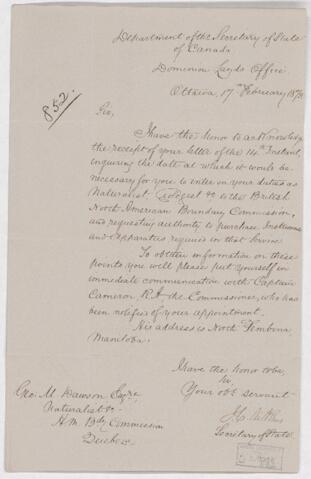 Department of the Secretary of State
of Canada.
Dominion Lands Office
Ottawa, 17th February 187
852.
Sir,
I have the honor to acknowledge
the receipt of your letter of the 14th Instant,
inquiring the date at which it would be
necessary for you to enter on your duties as
Naturalist, Geologist &c to the British
North American Boundary Commission,
and requesting authority to purchase Instruments
and Apparatus required in that
To obtain information on these
points you will please put yourself in
immediate communication with Captain
Cameron, R.A. the Commissioner, who has
been notified of your appointment.
His address is North Pembina
Manitoba.
I have the honor to be,
Sir
Your obt servant
Secretary of State
Geo. M. Dawson Esqre
Naturalist &c
H.M. Bdy Commission
Quebec